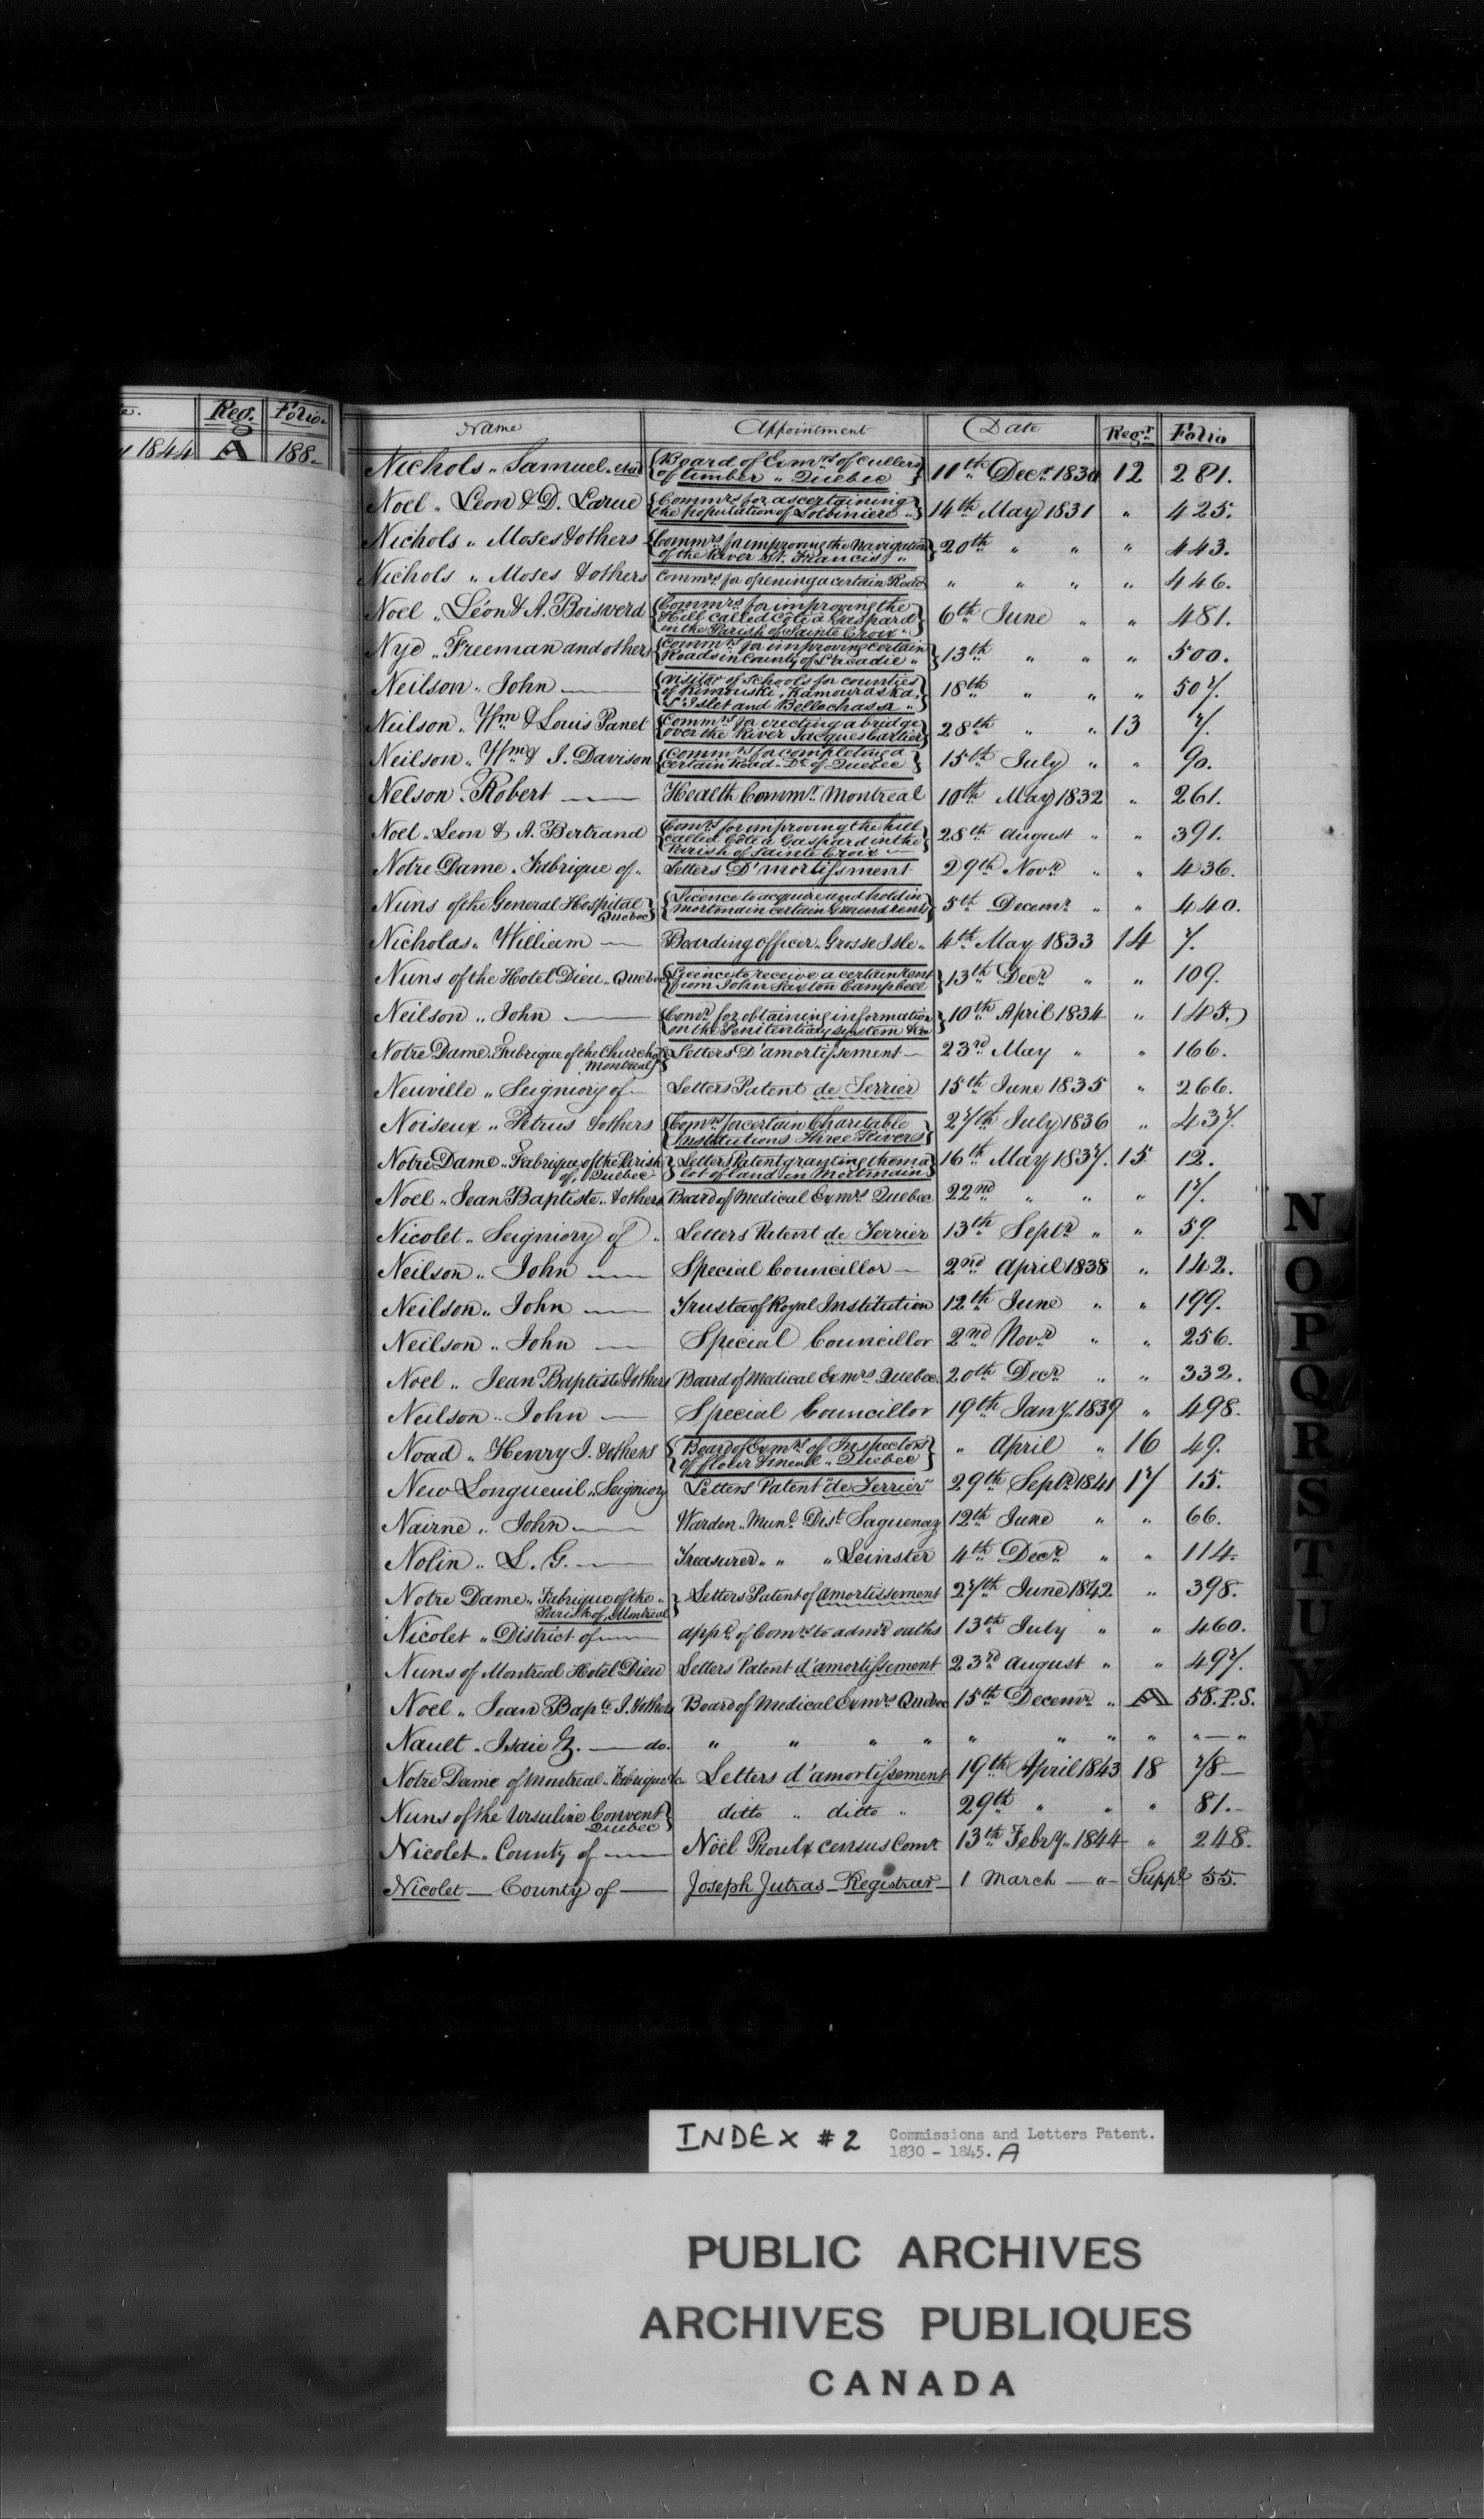 e. Reg. Folio.
y 1844 A 188-
Name Appointment Date Regr Folio
Nichols „ Samuel „ Board of Exmrs of Cullers of timber „ Quebec 11th Decr 1830 12 281.
Noel „ Leon & D. Larue Commrs for ascertaining the population of Lotbiniere „ 14th May 1831 „ 425.
Nichols „ Moses & others Commrs for improving the Navigation of the River St. Francis „ 20th „ „ „ 443.
Nichols „ Moses & others Commrs for opening a certain Road „ „ „ „ 446.
Noel „ Léon & A. Boisverd Commrs for improving the Hill called Côte à Gaspard in the Parish of Sainte Croix „ 6th June „ „ 481.
Nye „ Freeman and others Commrs for improving certain Roads in County of L'acadie „ 13th „ „ „ 500.
Neilson „ John — Visitor of Schools for counties of Rimouski, Kamouraska, L'Islet and Bellechasse „ 18th „ „ „ 507.
Neilson „ Wm & Louis Panet Commrs for erecting a bridge over the River Jacques Cartier 28th „ „ 13 7.
Neilson „ Wm & J. Davison Commrs for completing a certain Road „ Dt of Quebec 15th July „ „ 90.
Nelson „ Robert — Health Commr Montreal 10th May 1832 „ 261.
Noel „ Leon & A. Bertrand Comrs for improving the hill called Côte à Gaspard in the Parish of Sainte Croix — 28th August „ „ 391.
Notre Dame „ Fabrique of „ Letters D'mortissment 29th Novr „ „ 436.
Nuns of the General Hospital Quebec Licence to acquire and hold in mortmain certain Ground rents 5th Decemr „ „ 440.
Nicholas „ William — Boarding officer „ Grosse Isle „ 4th May 1833 14 7.
Nuns of the Hotel Dieu „ Quebec Licence to receive a certain rent from John Saxton Campbell 13th Decr „ „ 109.
Neilson „ John — Comr for obtaining information on the Penitentiary system &ca 10th April 1834 „ 145.
Notre Dame „ Fabrique of the Church of Montreal Letters D'amortissement — 23rd May „ „ 166.
Neuville „ Seigniory of — Letters Patent de Terrier 15th June 1835 „ 266.
Noiseux „ Petrus & others Comrs for certain Charitable Institutions Three Rivers 27th July 1836 „ 437.
Notre Dame „ Fabrique of the Parish of, Quebec Letters Patent granting them a lot of land in Mortmain 16th May 1837. 15 12.
Noel „ Jean Baptiste „ & others Board of Medical Exmrs Quebec 22nd „ „ „ 17.
Nicolet „ Seigniory of „ Letters Patent de Terrier 13th Septr „ „ 59.
Neilson „ John — Special Councillor — 2nd April 1838 „ 142.
Neilson „ John — Trustee of Royal Institution 12th June „ „ 199.
Neilson „ John — Special Councillor 2nd Novr „ „ 256.
Noel „ Jean Baptiste & others Board of Medical Exmrs Quebec 20th Decr „ „ 332.
Neilson „ John — Special Councillor 19th Jany. 1839 „ 498.
Noad „ Henry J. & others Board of Exmrs of Inspectors of flour & meal „ Quebec „ April „ 16 49.
New Longueuil „ Seigniory Letters Patent "de Terrier" 29th Septr 1841 17 15.
Nairne „ John — Warden „ Munl Dist. Saguenay 12th June „ „ 66.
Nolin „ L. G. — Treasurer „ „ „ Leinster 4th Decr „ „ 114.
Notre Dame „ Fabrique of the „ Parish of, Montreal Letters Patent of amortissement 27th June 1842 „ 398.
Nicolet „ District of — appt of Comrs to admr oaths 13th July „ „ 460.
Nuns of Montreal Hotel Dieu Letters Patent d'amortissement 23rd August „ „ 497.
Noel „ Jean Bapte J. & others Board of Medical Exmrs Quebec 15th Decemr „ A 58. P.S.
Nault „ Isaie G. — do. „ „ „ „ „ „ „ „ „ — „
Notre Dame of Montreal „ Fabrique &c Letters d'amortissement 19th April 1843 18 78—
Nuns of the Ursuline Convent Quebec ditto „ ditto „ 29th „ „ „ 81.-
Nicolet „ County of — Noël Proulx census Comr 13th Febry. 1844 „ 248.
Nicolet — County of — Joseph Jutras — Registrar — 1 March — „ — Suppt 55.
N
O
P
Q
R
S
T
U
V
W
INDEX # 2 Commissions and Letters Patent.
1830 - 1845. A
PUBLIC ARCHIVES
ARCHIVES PUBLIQUES
CANADA